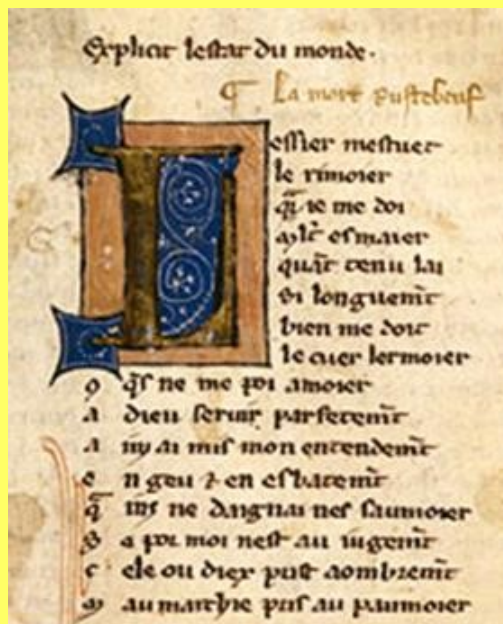 Explicit lestat du monde.
¶ La mort rustebeuf
Lessier mestuet
le rimoier
q̄r ie me doi
ml̄t esmaier
quāt tenu lai
si longuem̄t
bien me doit
le cuer lermoier
9 q̄s ne me poi amoier
a dieu seruir parfetem̄t
a inz ai mis mon entendem̄t
e n geu ⁊ en esbatem̄t
q̄ ins ne daignai nes saumoier
S e por moi nest au iugem̄t
c ele ou diex prist aombrem̄t
m au marchie pris au paumoier